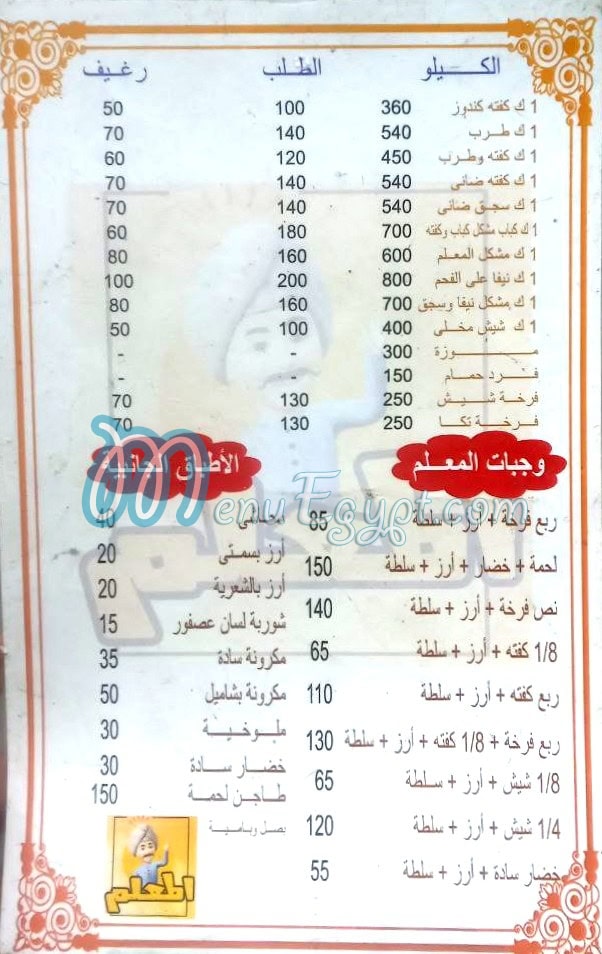 الكيلو الطلب رغيف
1 ك كفته كندوز 360 100 50
1 ك طرب 540 140 70
1 ك كفته وطرب 450 120 60
1 ك كفته ضانى 540 140 70
1 ك سجق ضانى 540 140 70
1 ك كباب مشكل كباب وكفته 700 180 60
1 ك مشكل المعلم 600 160 80
1 ك نيفا على الفحم 800 200 100
1 ك مشكل نيفا وسجق 700 160 80
1 ك شيش مخلى 400 100 50
موزة 300 - -
فرد حمام 150 - -
فرخة شيش 250 130 70
فرخة تكا 250 130 70
وجبات المعلم
ربع فرخة + أرز + سلطة 85
لحمة + خضار + أرز + سلطة 150
نص فرخة + أرز + سلطة 140
1/8 كفته + أرز + سلطة 65
ربع كفته + أرز + سلطة 110
ربع فرخة + 1/8 كفته + أرز + سلطة 130
1/8 شيش + أرز + سلطة 65
1/4 شيش + أرز + سلطة 120
خضار سادة + أرز + سلطة 55
الأطباق الجانبية
40
أرز بسمتى 20
أرز بالشعرية 20
شوربة لسان عصفور 15
مكرونة سادة 35
مكرونة بشاميل 50
ملوخية 30
خضار سادة 30
طاجن لحمة 150
بصل وبامية
المعلم
MenuEgypt.com
المعلم